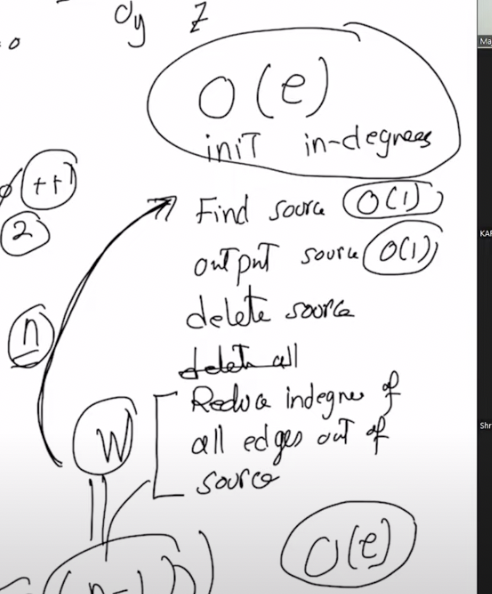 dy Z
O(e)
init in-degrees
++1
2
Find source O(1)
output source O(1)
delete source
delete all
n
Reduce indegree of
all edges out of
source
W
O(e)
(n-1)
Ma
KAR
Shr